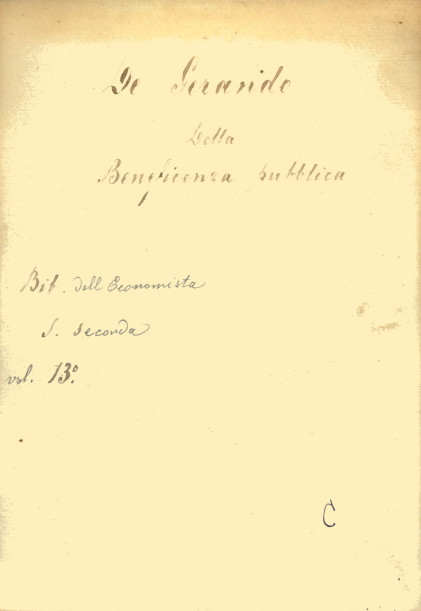 De Gerando
Della
Beneficenza pubblica
Bib. dell'Economista
S. seconda
vol. 13°.
C